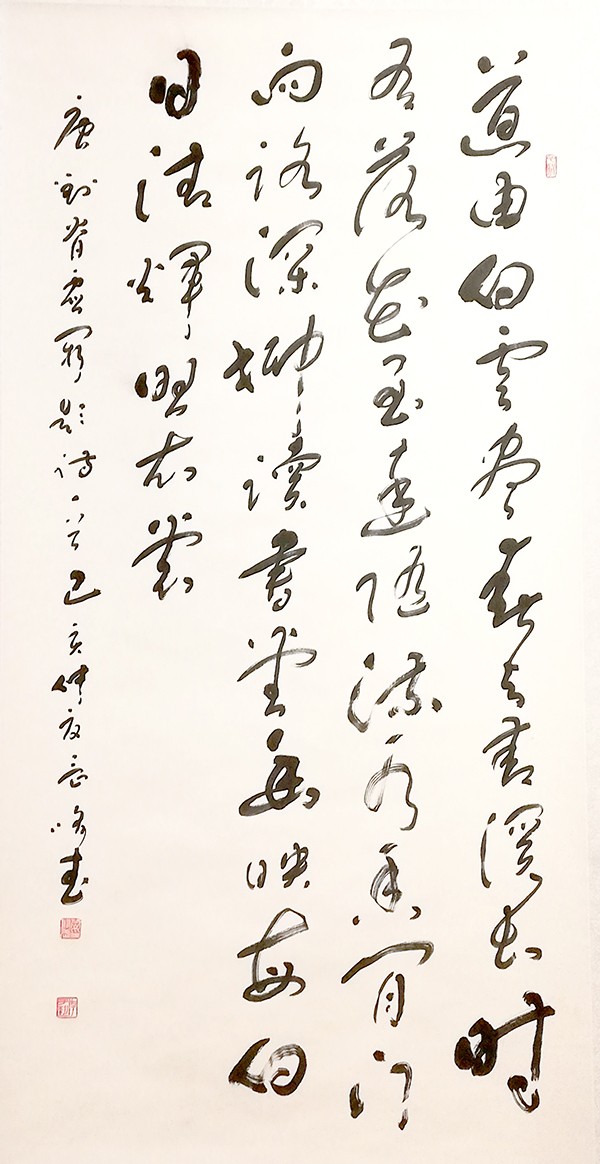 道由白雲盡春與青溪長時
有落花至遠隨流水香閒門
向路深柳讀書堂幽映每白
日清輝照衣裳
唐劉昚虛闕題詩一首己亥仲夏書